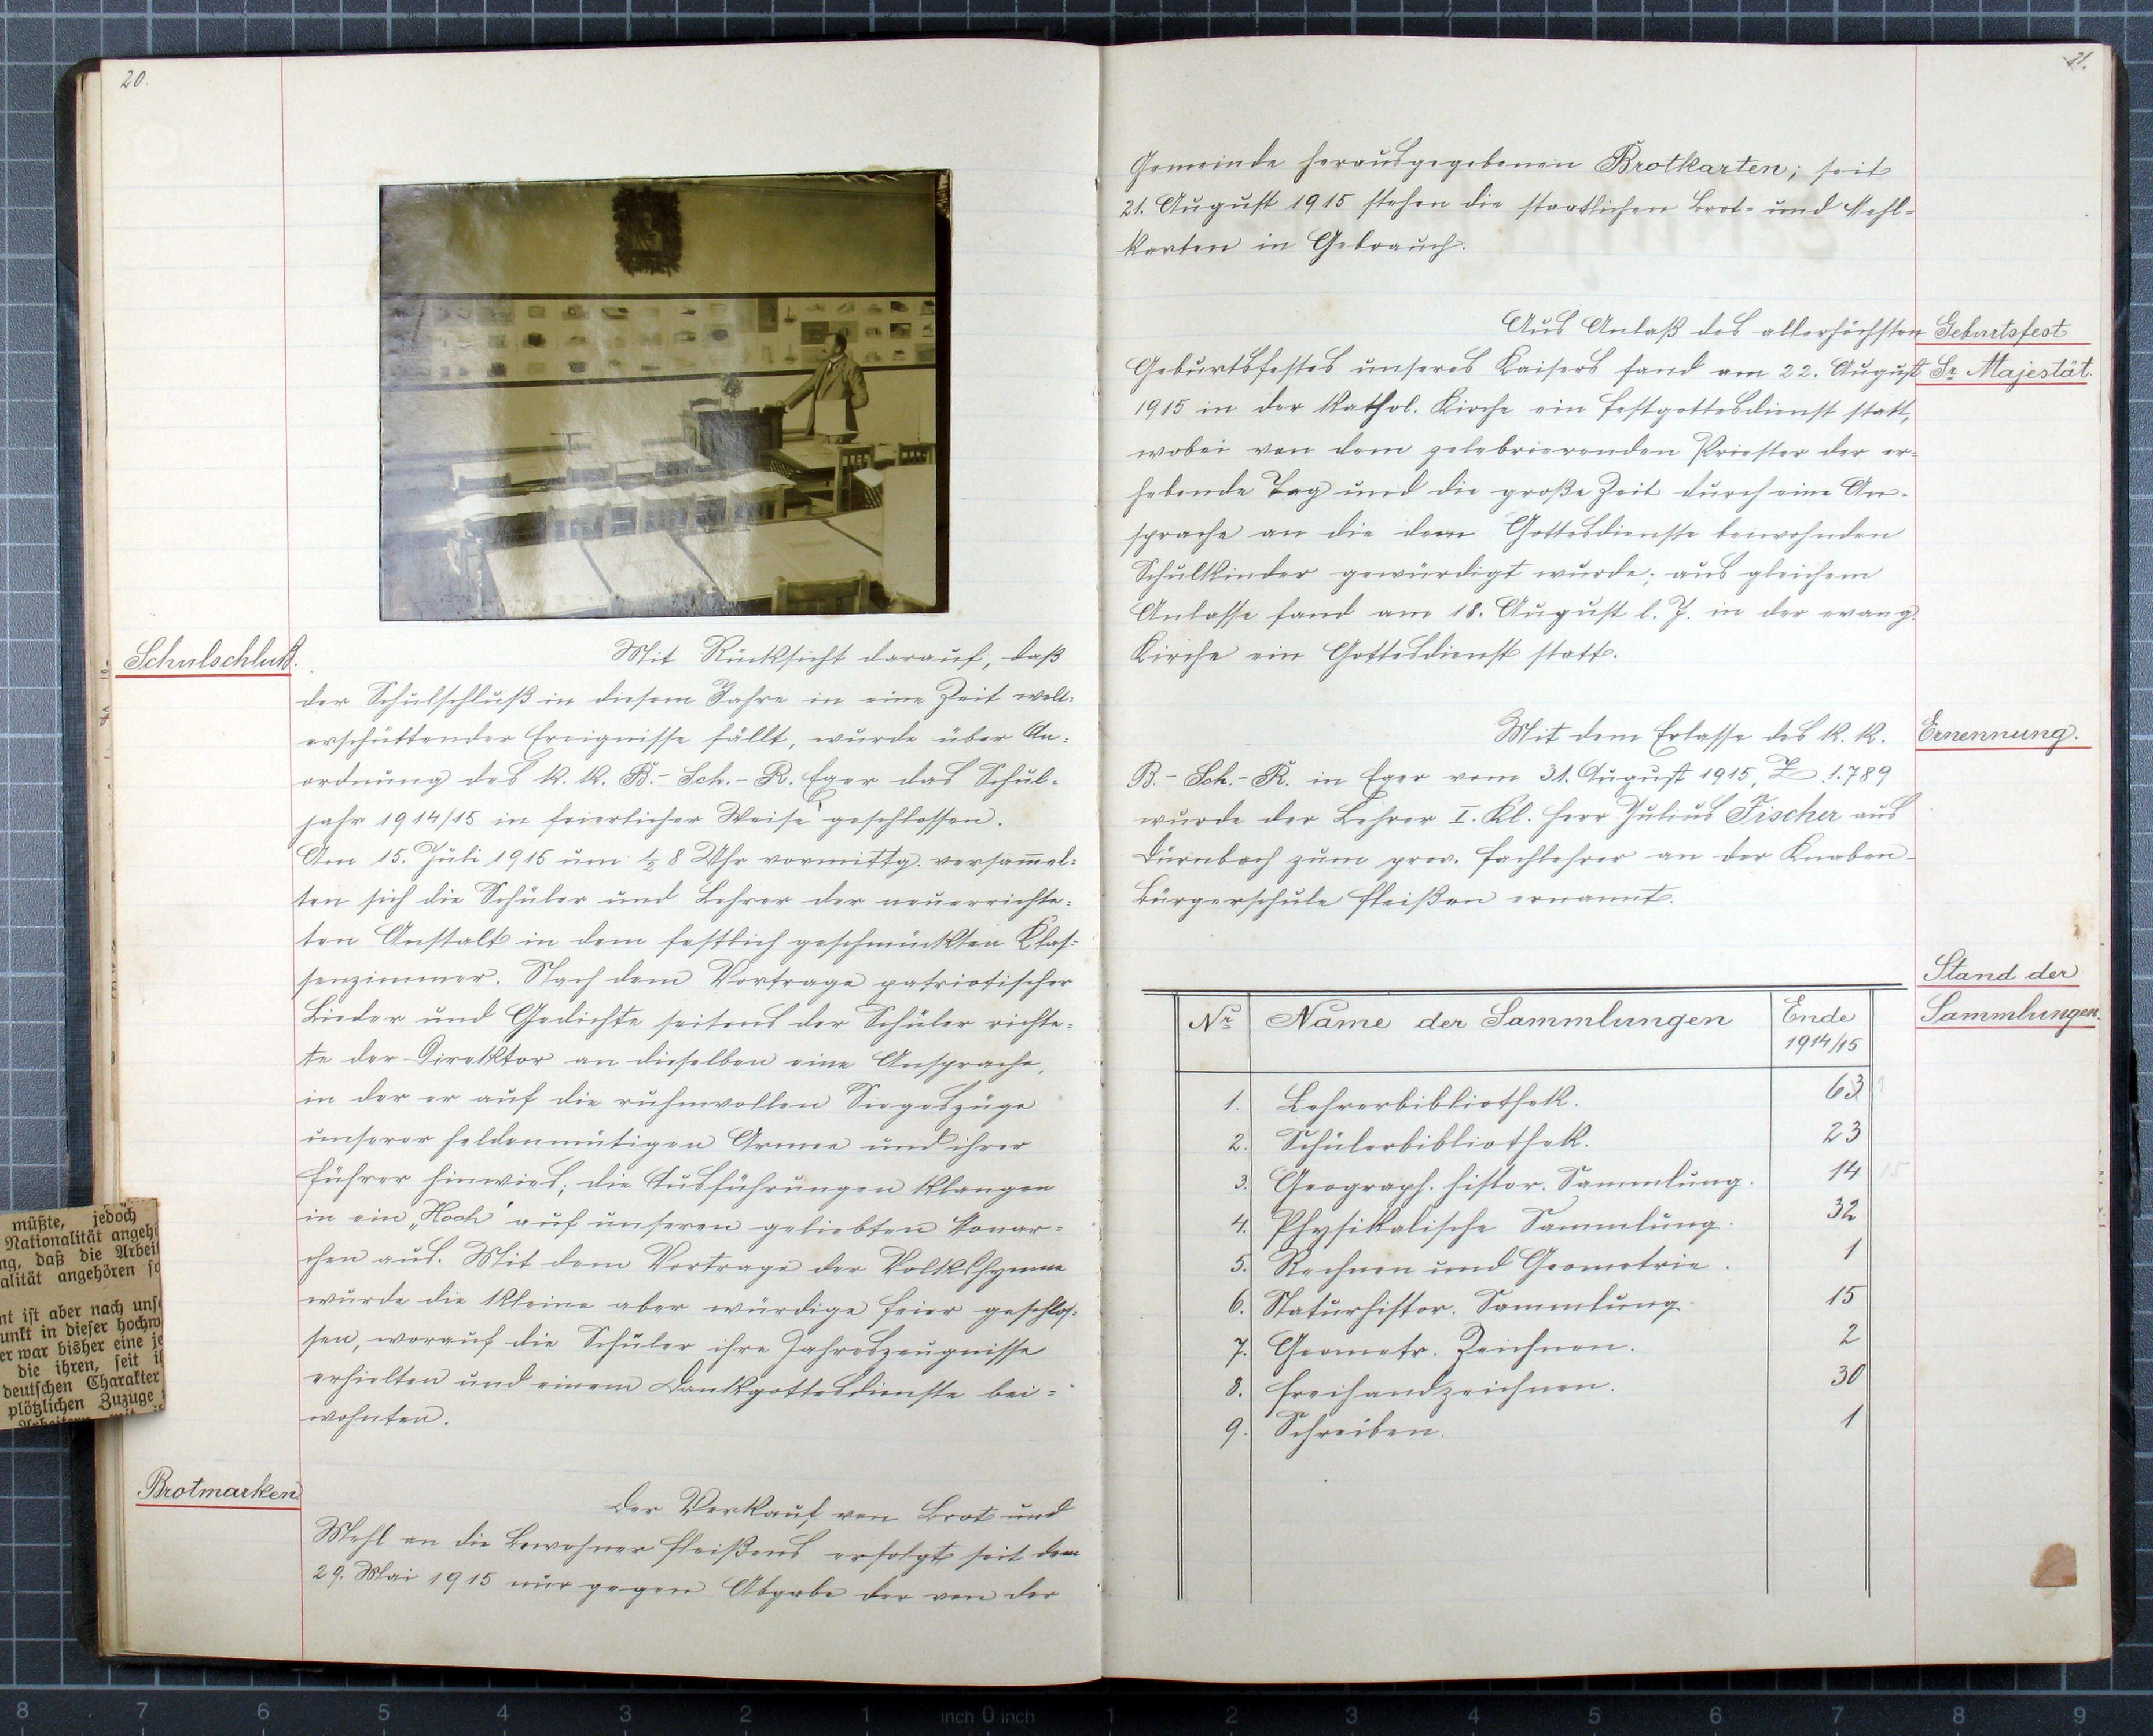 20.
Schulschluß.
Mit Rücksicht darauf, daß
der Schulschluß in diesem Jahre in eine Zeit welt=
erschütternder Ereignisse fällt, wurde über An=
ordnung des k. k. B.- Sch.- R. Eger das Schul=
jahr 1914/15 in feierlicher Weise geschlossen.
Am 15. Juli 1915 um ½ 8 Uhr vormittg. versam̄el=
ten sich die Schüler und Lehrer der neuerrichte=
ten Anstalt in dem festlich geschmückten Klas=
senzimmer. Nach dem Vortrage patriotischer
Lieder und Gedichte seitens der Schüler richte=
te der Direktor an dieselben eine Ansprache,
in der er auf die ruhmvollen Siegeszüge
unserer heldenmütigen Armee und ihrer
Führer hinwies; die Ausführungen klangen
in ein „Hoch" auf unseren geliebten Monar=
chen aus. Mit dem Vortrage der Volkshymne
wurde die kleine aber würdige Feier geschlos=
sen, worauf die Schüler ihre Jahreszeugnisse
erhielten und einem Dankgottesdienste bei=
wohnten.
Brotmarken.
Der Verkauf von Brot und
Mehl an die Bewohner Fleißens erfolgt seit dem
29. Mai 1915 nur gegen Abgabe der von der
müßte, jedoch
Nationalität angehö
ng, daß die Arbeit
alität angehören so
nt ist aber nach unse
unkt in dieser hochw
er war bisher eine je
die ihren, seit
deutschen Charakter
plötzlichen Zuzuge
21.
Gemeinde herausgegebenen Brotkarten; seit
21. August 1915 stehen die staatlichen Brot= und Mehl=
karten in Gebrauch.
Aus Anlaß des allerhöchsten
Geburtsfest
Geburtsfestes unseres Kaisers fand am 22. August
Sr Majestät.
1915 in der kathol. Kirche ein Festgottesdienst statt,
wobei von dem zelebrierenden Priester der er=
hebende Tag und die große Zeit durch eine An=
sprache an die dem Gottesdienste beiwohnden
Schulkinder gewürdigt wurde; aus gleichem
Anlasse fand am 18. August l. J. in der evang.
Kirche ein Gottesdienst statt.
Mit dem Erlasse des k. k.
Ernennung.
B.- Sch.- R. in Eger vom 31. August 1915, Z. 1.789
wurde der Lehrer I. Kl. Herr Julius Fischer aus
Dürnbach zum prov. Fachlehrer an der Knaben-
Bürgerschule Fleißen ernannt.
Stand der
Sammlungen.
Nr. Name der Sammlungen Ende
1914/15
1. Lehrerbibliothek. 63
2. Schülerbibliothek. 23
3. Geograph. histor. Sammlung. 14 15
4. Physikalische Sammlung. 32
5. Rechnen und Geometrie. 1
6. Naturhistor. Sammlung. 15
7. Geometr. Zeichnen. 2
8. Freihandzeichnen. 30
9. Schreiben. 1
8 7 6 5 4 3 2 1 inch 0 inch 1 2 3 4 5 6 7 8 9